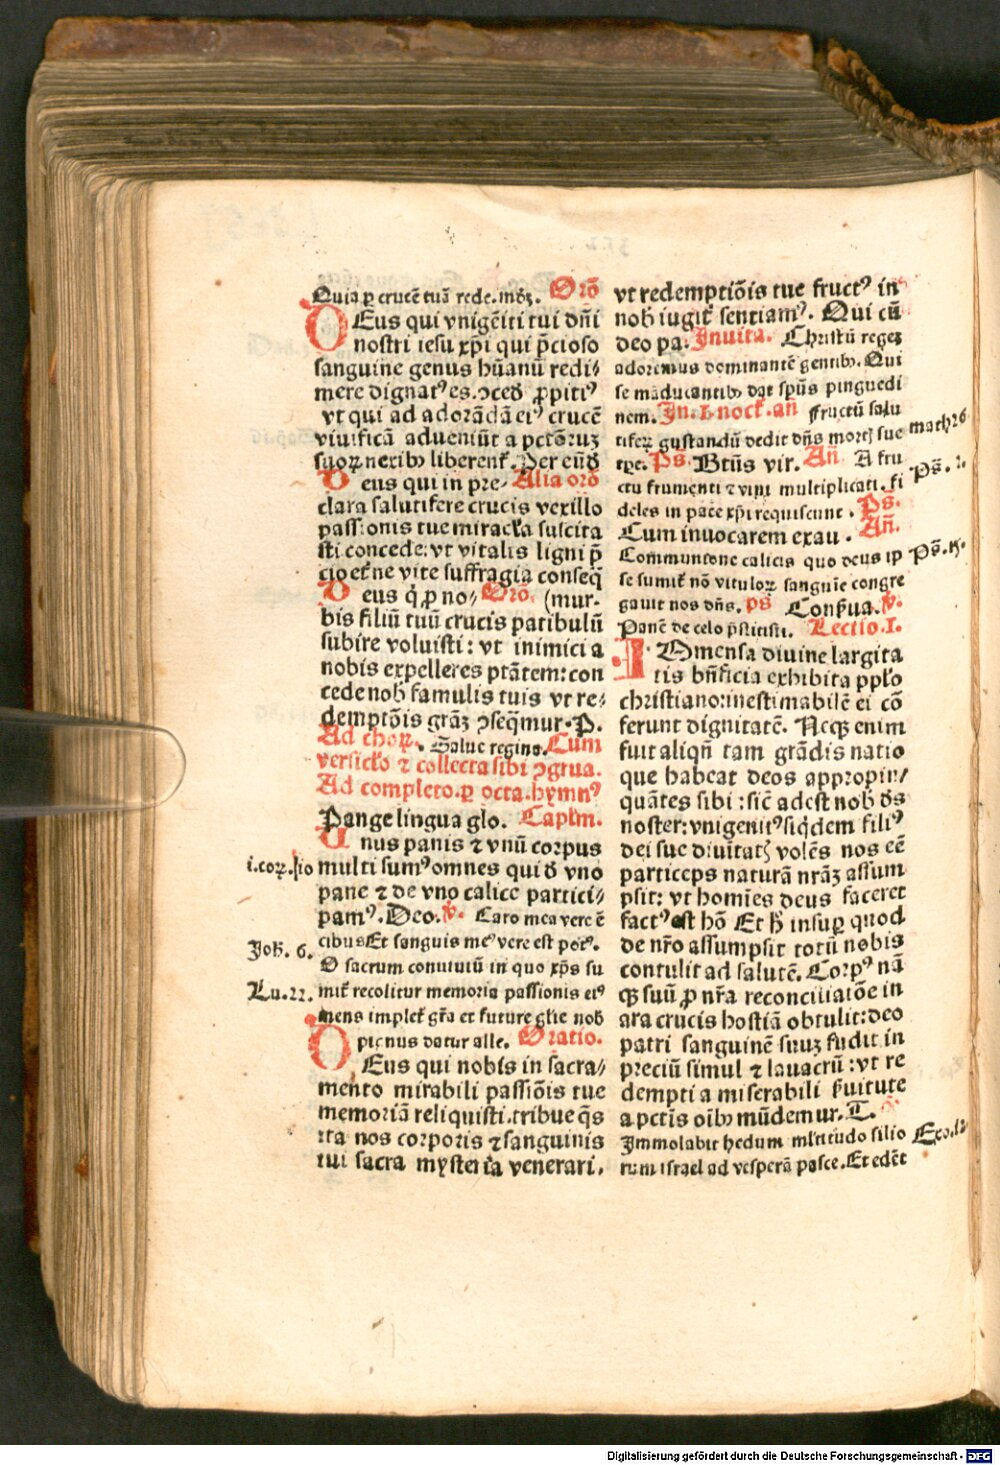 Quia ꝑ crucē tuā rede. mūdꝫ. Orō
DEus qui vnigēiti tui dn̄i
nostri iesu xp̄i qui p̄cioso
sanguine genus hūanū redi-
mere dignatꝰ es. ꝯcede ꝓpitiꝰ
vt qui ad adorādā eiꝰ crucē
viuificā adueniūt a pctōruꝫ
suoꝝ nexibꝰ liberent̄. Per eūdē
Deus qui in pre- Alia orō
clara salutifere crucis vexillo
passionis tue miracl̄a suscita
sti concede: vt vitalis ligni p̄
cio et̄ne vite suffragia conseq̄
Deus q̄ ꝓ no- Orō. (mur.
bis filiū tuū crucis patibulū
subire voluisti: vt inimici a
nobis expelleres ptātem: con
cede nob̄ famulis tuis vt re-
demptōis grāꝫ ꝯseq̄mur. P.
Ad choꝝ. Salue regina. Cum
versicl̄o ⁊ collecta sibi ꝯgrua.
Ad completo. ꝑ octa. hymnꝰ
Pange lingua glo. Capl̄m.
Unus panis ⁊ vnū corpus
i.coꝝ.10 multi sumꝰ omnes qui de vno
pane ⁊ de vno calice partici-
pamꝰ. Deo. v̄. Caro mea vere ē
Joh. 6. cibus Et sanguis meꝰ vere est potꝰ.
O sacrum conuiuiū in quo xp̄s su
Lu.22. mit̄ recolitur memoria passionis eiꝰ
mens implet̄ gr̄a et future glīe nob̄
pignus datur alle. Oratio.
DEus qui nobis in sacra-
mento mirabili passiōis tue
memoriā reliquisti. tribue q̄s
ita nos corporis ⁊ sanguinis
tui sacra mysteria venerari,
vt redemptiōis tue fructꝰ in
nob̄ iugit̄ sentiamꝰ. Qui cū
deo pa. Inuita. Christū regeꝫ
adoremus dominantē gentibꝰ. Qui
se māducantibꝰ dat sp̄us pinguedi
nem. In. I. noct̄. an̄ Fructū salu
tiferꝝ gustandū dedit dn̄s mortꝭ sue math 26
tp̄e. Ps̄. Btūs vir. An̄. A fru Ps̄. 2.
ctu frumenti ⁊ vini multiplicati. fi
deles in pace xp̄i requiescunt. Ps̄.
Cum inuocarem exau. An̄.
Communione calicis quo deus ip Ps̄.15.
se sumit̄ nō vituloꝝ sanguīe congre
gauit nos dn̄s. ps̄ Conserua. v̄.
Panē de celo p̄stitisti. Lectio. I.
IMmensa diuine largita
tis bn̄ficia exhibita ppl̄o
christiano: inestimabilē ei cō
ferunt dignitatē. Neqꝫ enim
fuit aliqn̄ tam grādis natio
que habeat deos appropin-
quātes sibi: sic̄ adest nob̄ deꝰs
noster: vnigenitꝰ siqdem filiꝰ
dei sue diuītatꝭ volēs nos eē
participes naturā nrāꝫ assum
psit: vt homīes deus faceret
factꝰ est hō Et h̄ insuꝑ quod
de nr̄o assumpsit totū nobis
contulit ad salutē. Corpꝰ nā
qꝫ suū ꝓ nr̄a reconciliatōe in
ara crucis hostiā obtulit: deo
patri sanguinē suuꝫ fudit in
preciū simul ⁊ lauacrū: vt re
dempti a miserabili seruitute
a pctīs oībꝰ mūdemur. T. R̄.
Immolabit hedum ml̄titudo filio Exo.12
rum israel ad vesperā pasce. Et edēt
Digitalisierung gefördert durch die Deutsche Forschungsgemeinschaft - DFG